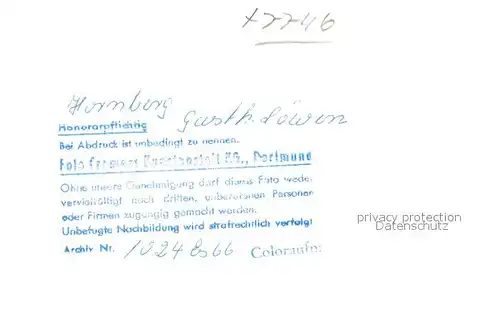 +2246
Hornberg
Gasth. Löwen
Honorarpflichtig
Bei Abdruck ist unbedingt zu nennen.
Foto Cramers Kunstanstalt KG., Dortmund
Ohne unsere Genehmigung darf dieses Foto weder
vervielfältigt noch dritten, unberufenen Personen
oder Firmen zugängig gemacht werden.
Unbefugte Nachbildung wird strafrechtlich verfolgt
Archiv Nr. 1024 Es 66 Coloraufn:
privacy protection
Datenschutz